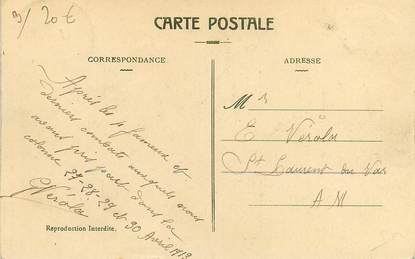 3/ 20 €
CARTE POSTALE
CORRESPONDANCE
ADRESSE
Après les 4 fameux et
derniers combats auxquels nous
avons pris part dans la
colonne
27-28-29 et 30 Avril 1913
GVérola
Mr
E Vérola
St Laurent du Var
A M
Reproduction Interdite.